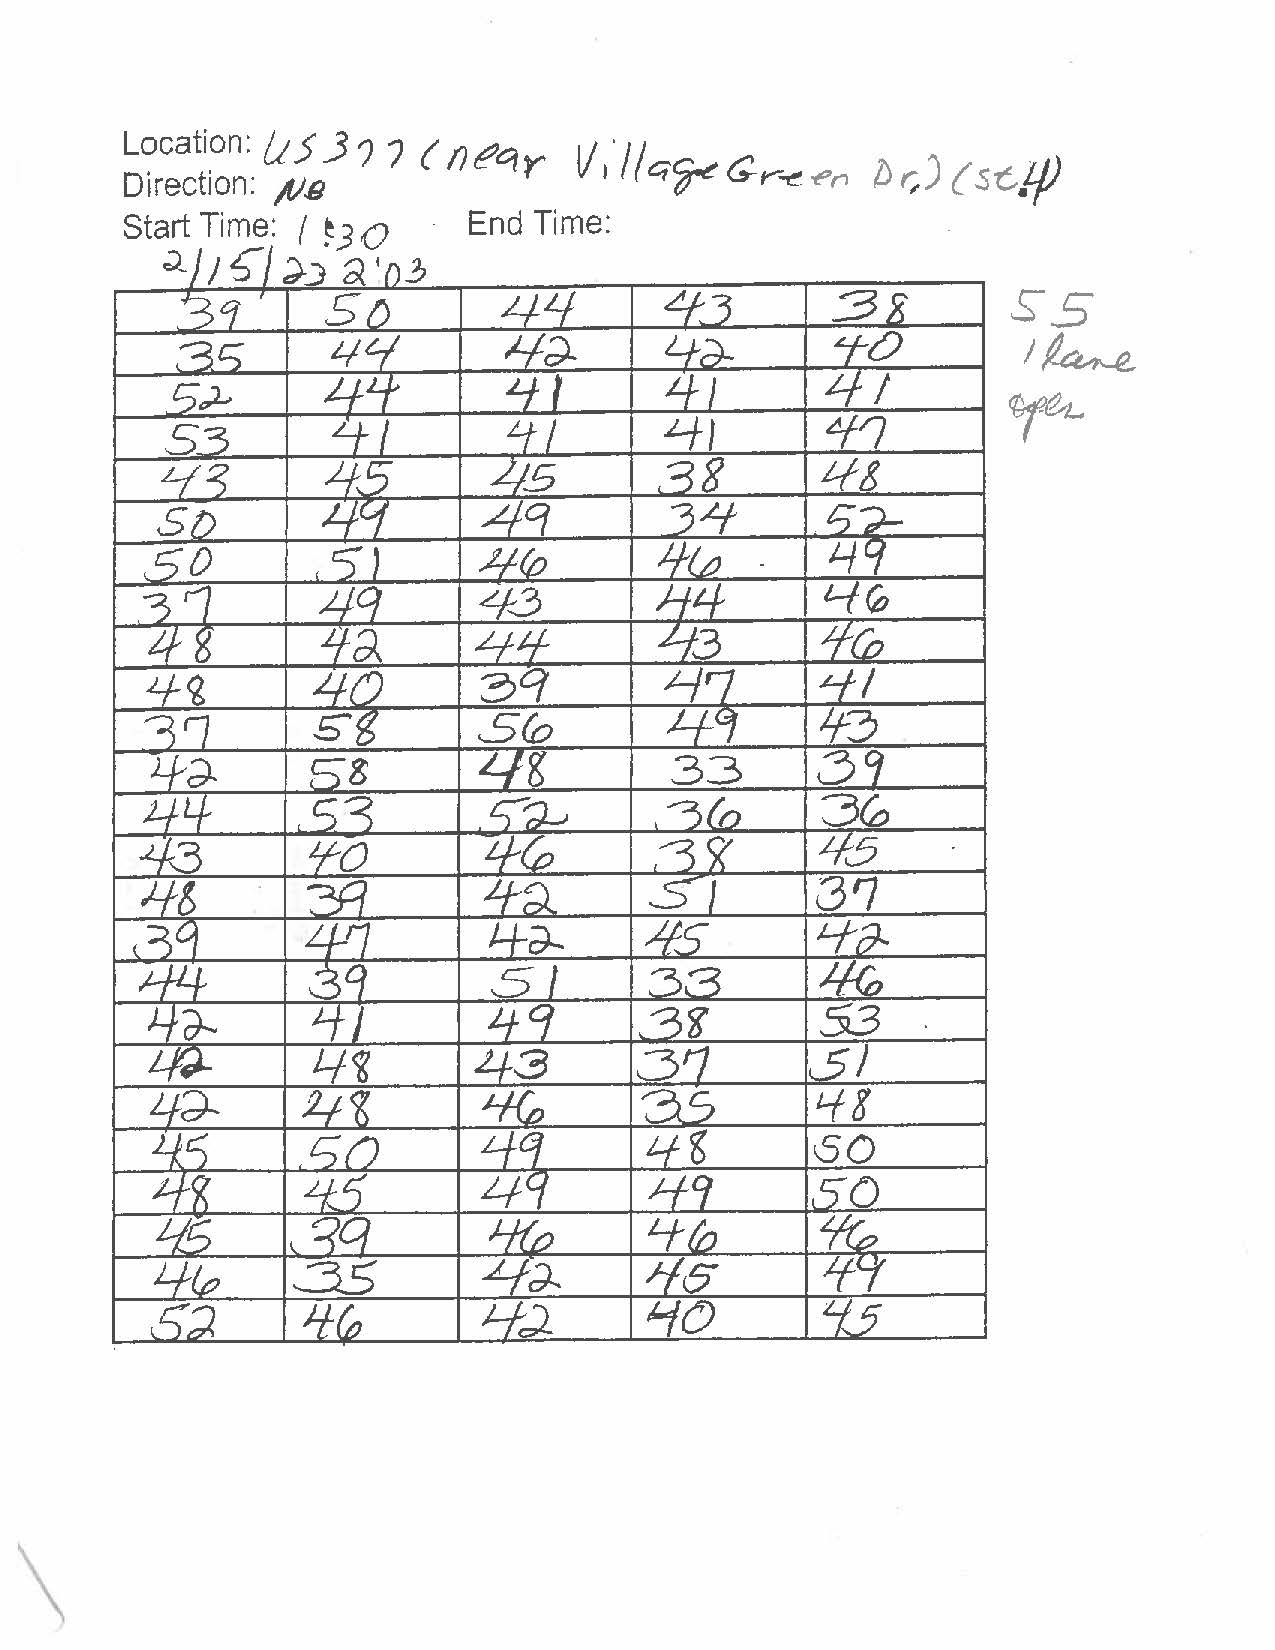 Location: US 377 (near Village Green Dr.) (st. 4)
Direction: NB
Start Time: 1:30 End Time:
2/15/23 2:03
39 50 44 43 38 55
35 44 42 42 40 1 lane
52 44 41 41 41 open
53 41 41 41 47
43 45 45 38 48
50 49 49 34 52
50 51 46 46 49
37 49 43 44 46
48 42 44 43 46
48 40 39 47 41
37 58 56 49 43
42 58 48 33 39
44 53 52 36 36
43 40 46 38 45
48 39 42 51 37
39 47 42 45 42
44 39 51 33 46
42 41 49 38 53
42 48 43 37 51
42 48 46 35 48
45 50 49 48 50
48 45 49 49 50
45 39 46 46 46
46 35 42 45 49
52 46 42 40 45